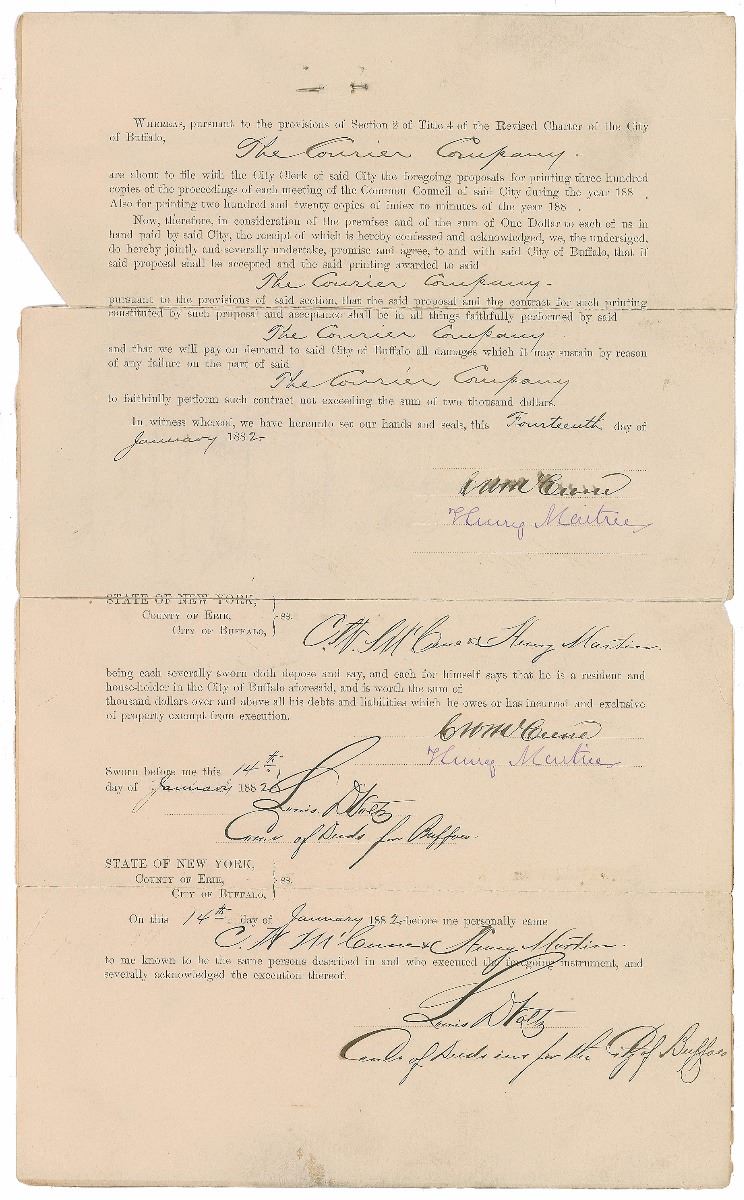 WHEREAS, pursuant to the provisions of Section 2 of Title 4 of the Revised Charter of the City
of Buffalo,
The Courier Company.
are about to file with the City Clerk of said City the foregoing proposals for printing three hundred
copies of the proceedings of each meeting of the Common Council of said City during the year 188 .
Also for printing two hundred and twenty copies of Index to minutes of the year 188 .
Now, therefore, in consideration of the premises and of the sum of One Dollar to each of us in
hand paid by said City, the receipt of which is hereby confessed and acknowledged, we, the undersiged,
do hereby jointly and severally undertake, promise and agree, to and with said City of Buffalo, that if
said proposal shall be accepted and the said printing awarded to said
The Courier Company-
pursuant to the provisions of said section, that the said proposal and the contract for such printing
constituted by such proposal and acceptance shall be in all things faithfully performed by said
The Courier Company
and that we will pay on demand to said City of Buffalo all damages which it may sustain by reason
of any failure on the part of said
The Courier Company
to faithfully perform such contract not exceeding the sum of two thousand dollars.
In witness whereof, we have hereunto set our hands and seals, this Fourteenth day of
January 1882-
Henry Martin
STATE OF NEW YORK,
COUNTY OF ERIE, ss.
CITY OF BUFFALO,
C. W. McCune & Henry Martin.
being each severally sworn doth depose and say, and each for himself says that he is a resident and
householder in the City of Buffalo aforesaid, and is worth the sum of
thousand dollars over and above all his debts and liabilities which he owes or has incurred and exclusive
of property exempt from execution.
CWMcCune
Henry Martin
Sworn before me this 14th
day of January 1882
Louis D Voltz
Com of Deeds for Buffalo.
STATE OF NEW YORK,
COUNTY OF ERIE, ss.
CITY OF BUFFALO,
On this 14th day of January 1882 before me personally came
C. W McCune & Henry Martin.
to me known to be the same persons described in and who executed the foregoing instrument, and
severally acknowledged the execution thereof.
Louis D Voltz
of Deeds in & for the City of Buffalo